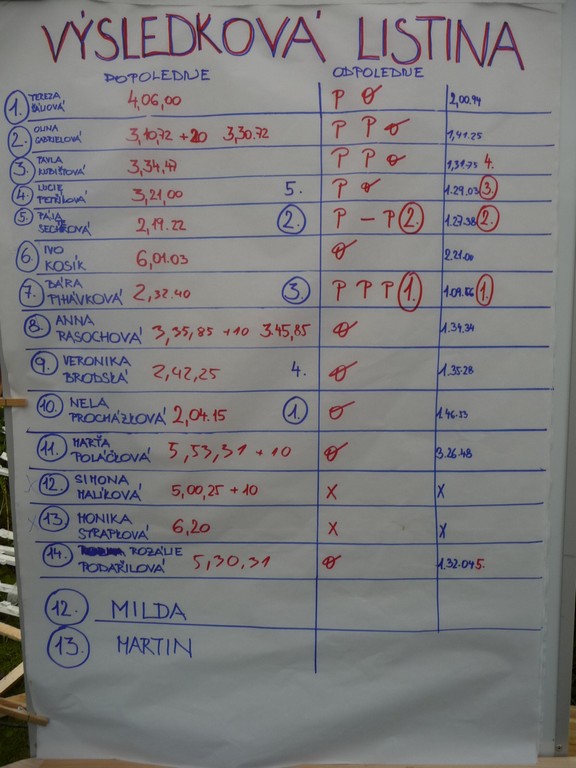 VÝSLEDKOVÁ LISTINA
DOPOLEDNE ODPOLEDNE
1. TEREZA 4,06,00 P Ø 2,00.94
2. OLINA GABRIELOVÁ 3,10,72 +20 3,30.72 P P Ø 1,41.25
3. PAVLA KUBIŠTOVÁ 3,34,47 P P Ø 1,31.75 4.
4. LUCIE 3,21,00 5. P Ø 1.29.03 3.
5. 2,19.22 2. P – P 2. 1.27.38 2.
6. IVO KOSÍK 6,01.03 Ø 2.21.00
7. BÁRA PIHÁVKOVÁ 2,32.40 3. P P P 1. 1.09. 1.
8. ANNA RASOCHOVÁ 3,35,85 +10 3.45,85 Ø 1.34.34
9. VERONIKA BRODSKÁ 2,42,25 4. Ø 1.35.28
10. NELA PROCHÁZKOVÁ 2,04.15 1. Ø 1.46.53
11. MARŤA POLÁČKOVÁ 5,53,31 +10 Ø 3.26.48
12. SIMONA MALÍKOVÁ 5,00,25 +10 X X
13. MONIKA STRAPKOVÁ 6,20 X X
14. ROZÁLIE PODAŘILOVÁ 5,30,31 Ø 1.32.04 5.
12. MILDA
13. MARTIN